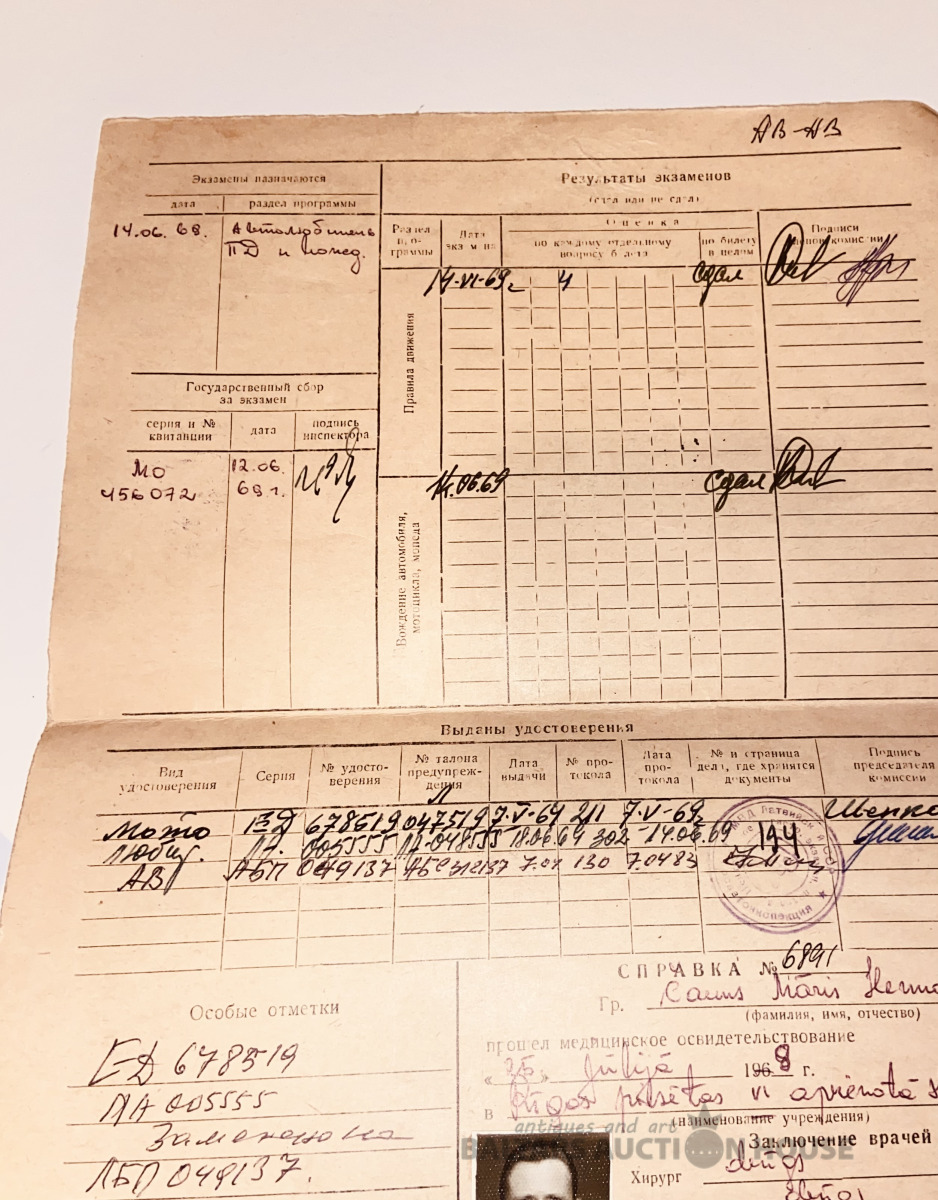 АВ-АВ
Экзамены назначаются
дата
раздел программы
14.06.69.
Автолюбитель
ПД и вожд.
Государственный сбор
за экзамен
серия и №
квитанции
дата
подпись
инспектора
МО
456072
12.06.
69 г.
Результаты экзаменов
(сдал или не сдал)
Раздел
програ-
граммы
Дата
экзамена
Оценка
по каждому отдельному
вопросу билета
по билету
в целом
Подписи
членов комиссии
Правила движения
14-VI-69г
4
сдал
Вождение автомобиля,
мотоцикла, мопеда
14.06.69
сдал
Выданы удостоверения
Вид
удостоверения
Серия
№ удосто-
верения
№ талона
предупреж-
дения
Дата
выдачи
№ про-
токола
Дата
про-
токола
№ и страница
дела, где хранятся
документы
Подпись
председателя
комиссии
Мото ЕД 678519 047519 7-V-69 211 7-V-69г
Любит. ЛА 005555 ЛА-048555 18.06.69 302 14.06.69 194
АВ АБП 049137 130 7.0483
СПРАВКА № 6891
Гр. Māris
(фамилия, имя, отчество)
прошел медицинское освидетельствование
„25„ Jūlijā 1968 г.
в Rīgas pilsētas VI
(наименование учреждения)
Заключение врачей
Хирург derīgs
Особые отметки
ЕД 678519
ЛА 005555
Заменено на
АБП 049137.
antiques and art
BALTIC AUCTION HOUSE